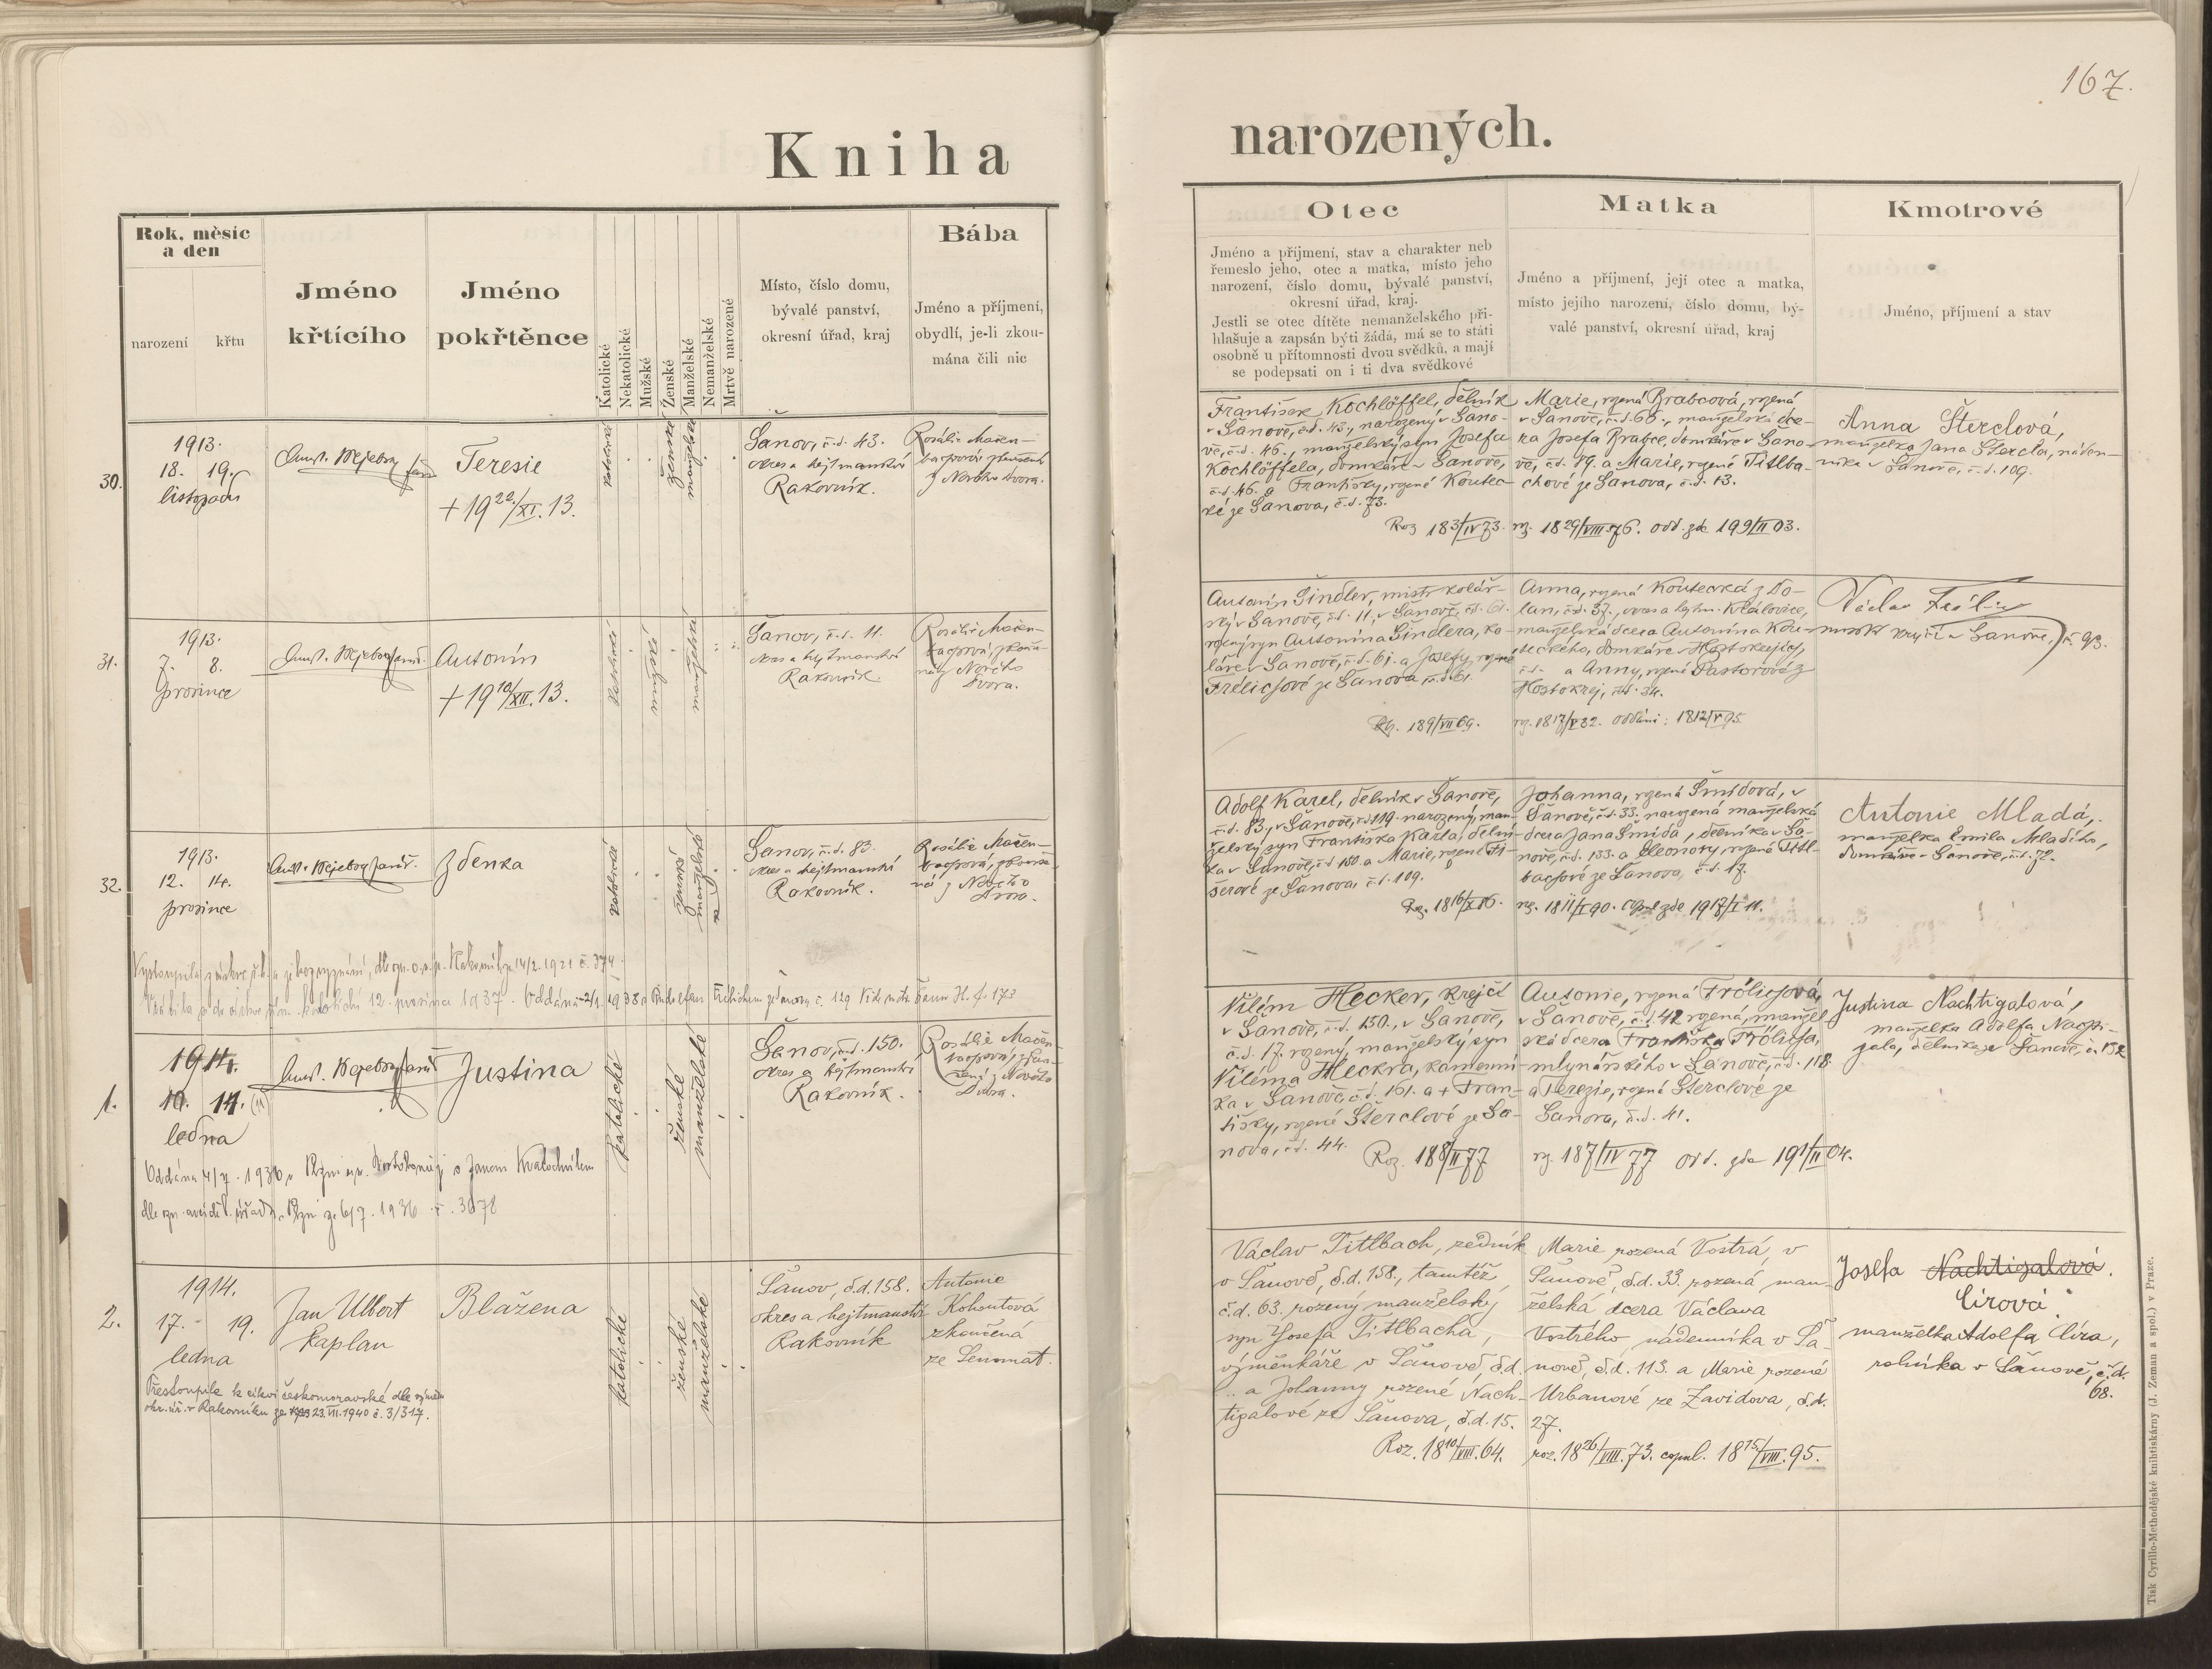 167.
Kniha
narozených.
Rok, měsíc
a den
narození
křtu
Jméno
křtícího
Jméno
pokřtěnce
Katolické
Nekatolické
Mužské
Ženské
Manželské
Nemanželské
Mrtvě narozené
Místo, číslo domu,
bývalé panství,
okresní úřad, kraj
Bába
Jméno a příjmení,
obydlí, je-li zkou-
mána čili nic
Otec
Jméno a příjmení, stav a charakter neb
řemeslo jeho, otec a matka, místo jeho
narození, číslo domu, bývalé panství,
okresní úřad, kraj.
Jestli se otec dítěte nemanželského při-
hlašuje a zapsán býti žádá, má se to státi
osobně u přítomnosti dvou svědků, a mají
se podepsati on i ti dva svědkové
Matka
Jméno a příjmení, její otec a matka,
místo jejího narození, číslo domu, bý-
valé panství, okresní úřad, kraj
Kmotrové
Jméno, příjmení a stav
30.
1913.
18. 19.
listopadu
Teresie
+ 19 22/XI. 13.
katolické
ženské
manželské
Šanov, č.d. 43.
okres a hejtmanství
Rakovník.
Rosálie
z Nového Dvora.
František Kochlöffel, dělník
v Šanově, č.d. 43., narozený v Šano-
vě, č.d. 46., manželský syn Josefa
Kochlöffela, domkáře v Šanově,
č.d. 46. a Františky, rozené Koutec-
ké ze Šanova, č.d. 73.
Roz 18 3/IV 73.
Marie, rozená Brabcová, rozená
v Šanově, č.d. 68., manželská dce-
ra Josefa Brabce, domkáře v Šano-
vě, č.d. 89. a Marie, rozené Titlba-
chové ze Šanova, č.d. 13.
nz. 18 29/VIII 76. odd. zde 19 9/II 03.
Anna Šterclová,
manželka JanaŠtercla, náden-
níka v Šanově, č.d. 109.
31.
1913.
7. 8.
prosince
Antonín
+ 19 10/XII. 13.
katolické
mužské
manželské
Šanov, č.d. 11.
okres a hejtmanství
Rakovník.
Rosálie
z Nového
Dvora.
Antonín Šindler, mistr kolář-
ský v Šanově, č.d. 11., v Šanově, č.d. 61.
rozený syn Antonína Šindlera, ko-
láře v Šanově, č.d. 61. a Josefy, rozené
Frölichové ze Šanova č.d. 61.
Roz. 18 9/VII 69.
Anna, rozená Koutecká z Do-
lan, č.d. 37., okres a hejtm. Kralovice,
manželská dcera Antonína Kou-
teckého, domkáře v Hostokrejích,
č.d. - a Anny, rozené Pastorové z
Hostokrej, č.d. 34.
oddáni: 18 12/V 95
Václav
mistr krejčí v Šanově, č. 93.
32.
1913.
12. 14.
prosince
Zdenka
katolické
ženské
manželské
Šanov, č.d. 83.
okres a hejtmanství
Rakovník.
Rosálie
z Nového
Dvora.
Adolf Karel, dělník v Šanově,
č.d. 83., v Šanově, č.d. 119. narozený, man-
želský syn Františka Karla, dělní-
ka v Šanově, č.d. 150. a Marie, rozené Fi-
šerové ze Šanova, č.d. 109.
Roz. 18 16/X 86.
Johanna, rozená Šmídová, v
Šanově, č.d. 33. narozená manželská
dcera Jana Šmída, dělníka v Ša-
nově, č.d. 133. a Eleonory, rozené Titl-
bachové ze Šanova, č.d. 17.
nz. 18 11/I 90. Copul. zde
Antonie Mladá,
manželka Emila Mladého,
domkáře v Šanově, č.d. 72.
Vystoupila z církve ř. k. a je bez vyznání, dle ozn. o. s. p. Rakovník ze 14/2. 1921 č. 374.
Vrátila se do církve řím. katolické 12. prosince 1937. Oddána 2/1. 1938 s Rudolfem Frölichem ze Šanova č. 129 Viz matr. Šanov III. f. 173
1.
1914.
10. 14. (11)
ledna
Justina
katolické
ženské
manželské
Šanov, č.d. 150.
okres a hejtmanství
Rakovník.
Rosálie
z Nového
Dvora.
Vilém Hecker, krejčí
v Šanově, č.d. 150., v Šanově,
č.d. 17. rozený, manželský syn
Viléma Heckra, kamenní-
ka v Šanově, č.d. 161. a + Fran-
tišky, rozené Šterclové ze Ša-
nova, č.d. 44.
Roz. 18 8/II 77
Antonie, rozená Frölichová,
v Šanově, č.d. 42 rozená, manžel-
ská dcera Františka Frölicha,
mlynářského v Šanově, č.d. 118.
a Terezie, rozené Šterclové ze
Šanova, č.d. 41.
nz. 18 7/IV 77 odd. zde 19 1/II 04.
Justina Nachtigalová,
manželka Adolfa Nachti-
gala, dělníka v Šanově, č. 152
Oddána 4/7. 1936 v Plzni s Janem Kratochvílem
dle ozn. Plzni ze 6/7. 1936 č. 3678
2.
1914.
17. - 19.
ledna
Jan Ulbert
kaplan
Blažena
katolické
ženské
manželské
Šanov, č.d. 158.
okres a hejtmanství
Rakovník
Antonie
Kohoutová
zkoušená
ze Senomat.
Václav Titlbach, zedník
v Šanově, č.d. 158., tamtéž
č.d. 63. rozený manželský
syn Josefa Titlbacha,
výměnkáře v Šanově, č.d.
.. a Johanny rozené Nach-
tigalové ze Šanova, č.d. 15.
Roz. 18 10/VIII. 64.
Marie rozená Vostrá, v
Šanově, č.d. 33. rozená man-
želská dcera Václava
Vostrého nádenníka v Ša-
nově, č.d. 113. a Marie rozené
Urbanové ze Zavidova, č.d.
27.
roz. 18 26/VIII. 73. copul. 18 15/VIII. 95.
Josefa Nachtigalová.
Círová
manželka Adolfa Círa,
rolníka v Šanově, č.d.
68.
Přestoupila k církvi českomoravské dle výnosu
okr. úř. v Rakovníku ze 23. VII. 1940 č. 3/317.
Tisk Cyrillo-Methodějské knihtiskárny (J. Zeman a spol.) v Praze.